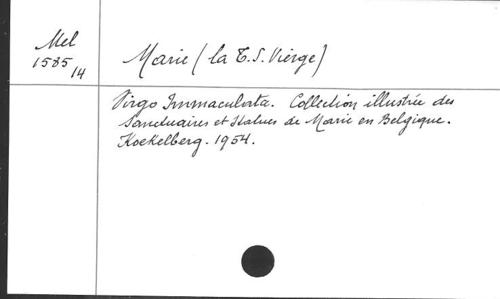 Mel
1585
/4
Marie (la T.S. Vierge)
Virgo Immaculata. Collection illustrée des
Sanctuaires et Statues de Marie en Belgique.
Koekelberg. 1954.